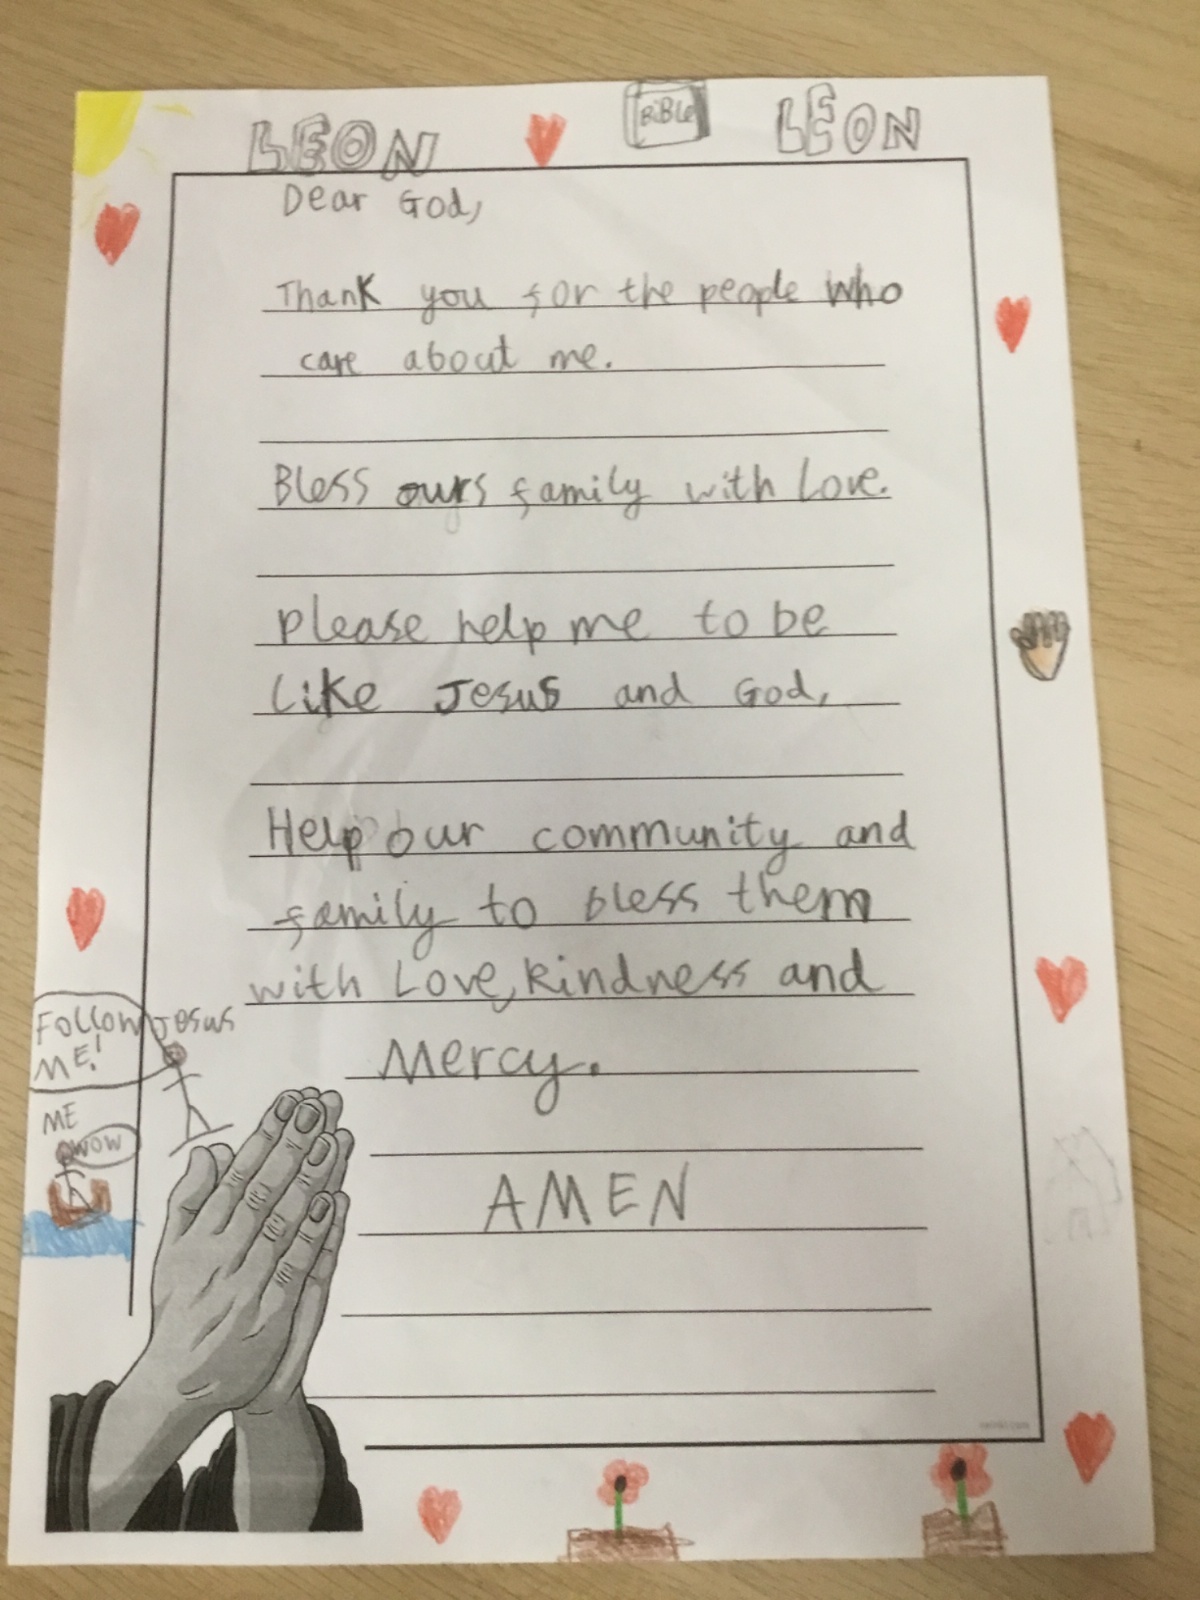 LEON
BiBLe
LEON
Dear God,
Thank you for the people who
care about me.
Bless ours family with Love.
please help me to be
Like Jesus and God,
Help our community and
family to bless them
with Love, kindness and
Mercy.
AMEN
FOLLOW
ME!
Jesus
ME
WOW